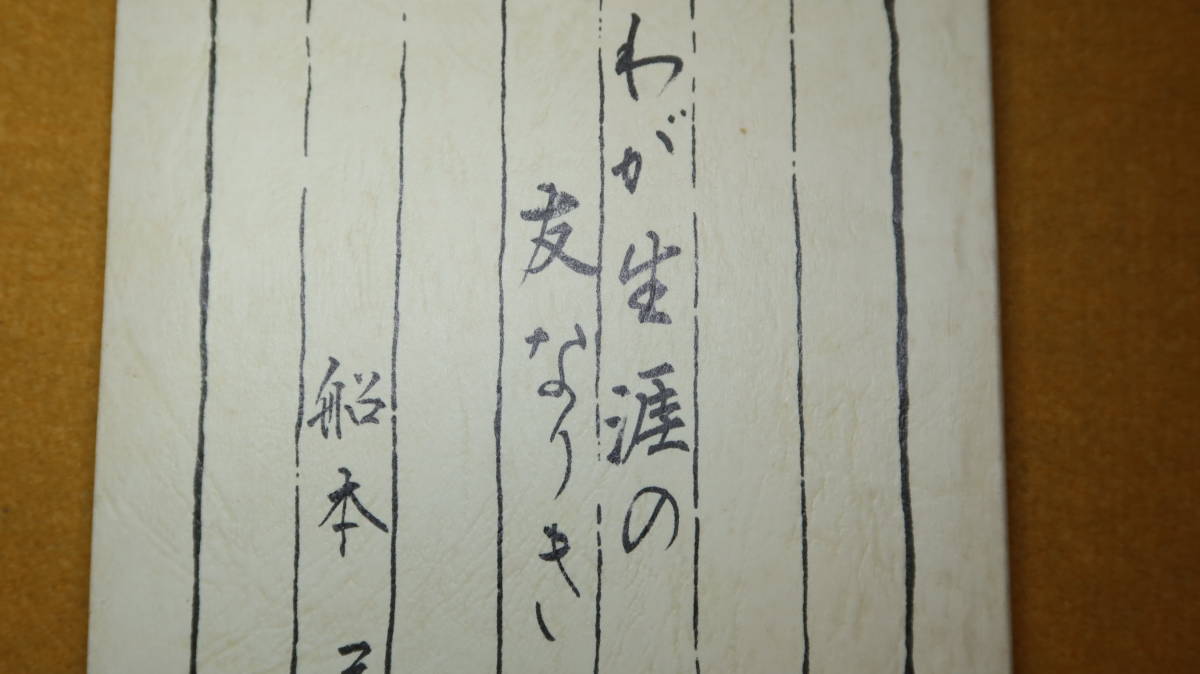 わが生涯の
友なりき
船本